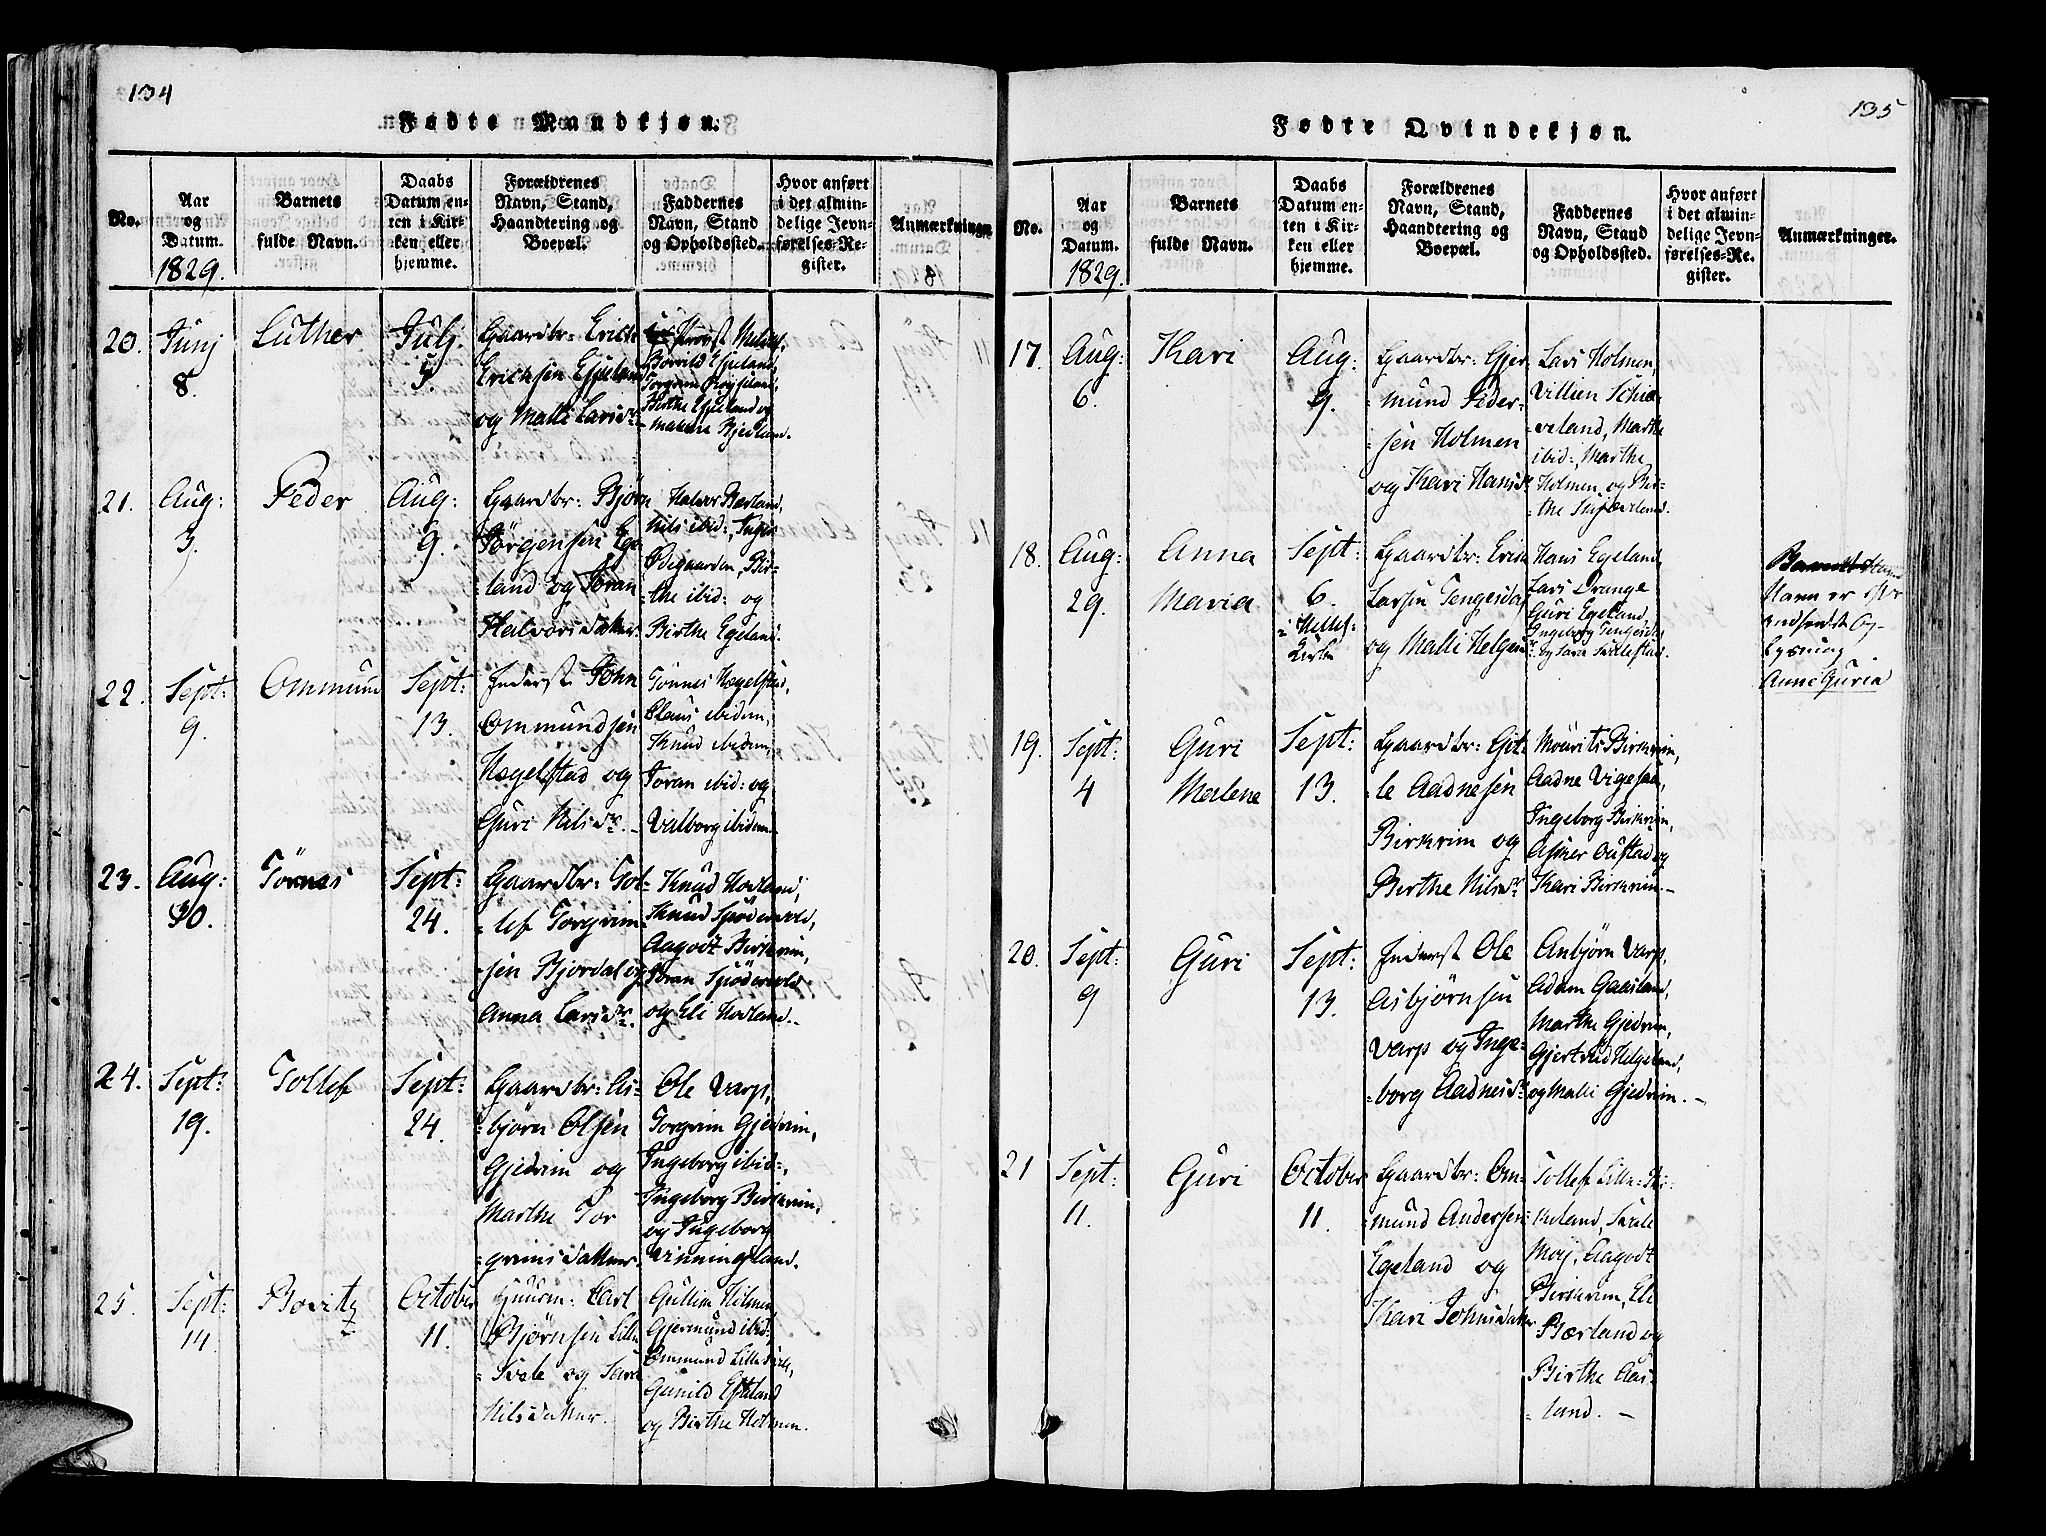 134
Fødte Mandkjøn.
No.
Aar
og
Datum.
1829.
Barnets
fulde Navn.
Daabs
Datum en-
ten i Kir-
ken eller
hjemme.
Forældrenes
Navn, Stand,
Haandtering og
Boepæl.
Faddernes
Navn, Stand
og Opholdssted.
Hvor anført
i det almin-
delige Jevn-
førelses-Re-
gister.
Anmærkninger
20.
Junj
8.
Luther
Julj
5.
Gaardbr: Erich
Erichsen Espeland
og Malli Larsdr.
Berthe Espeland og
Malene Bjedland.
21.
Aug:
3.
Peder
Aug:
9.
Gaardbr: Bjørn
Jörgensen Ege-
land og Joran
Halvorsdatter.
Halvor Bærland,
Nils ibid:, Inger
Ødegaarden, Bir-
the ibid: og
Birthe Egeland.
22.
Sept:
9.
Ommund
Sept:
13.
Inderst John
Ommundsen
Hægelstad og
Guri Nilsdr.
Tönnes Hægelstad,
Claus ibidem,
Knud ibidem,
Joran ibid: og
Valborg ibidem
23.
Aug:
30.
Tönnes
Sept:
24.
Gaardbr: Tol-
-lef Torgrim-
-sen Bjordal og
Anna Larsdr.
Knud Hovland,
Knud Spödervold,
Aagodt Birkrim,
Joran Spödervold
og Eli Hovland.-
24.
Sept:
19.
Tollef
Sept:
24.
Gaardbr: As-
-björn Olsen
Gjedrim og
Marthe Tor
-grimsdatter.
Ole Varp,
Torgrim Gjedrim,
Ingeborg ibid:,
Ingeborg Birkrim,
og Ingeborg
Vinningsland.
25.
Sept:
14.
Bovitz
October
11.
Huusm: Carl
Bjørnsen Lille
Svele og Sara
Nilsdatter.
Gullim Holmen,
Gjermund ibid:,
Ommund Lille Svele,
Gunild Efteland
og Birthe Holmen.
135
Fødte Qvindekjøn.
No.
Aar
og
Datum.
1829.
Barnets
fulde Navn.
Daabs
Datum en-
ten i Kir-
ken eller
hjemme.
Forældrenes
Navn, Stand,
Haandtering og
Boepæl.
Faddernes
Navn, Stand
og Opholdssted.
Hvor anført
i det almin-
delige Jevn-
førelses-Re-
gister.
Anmærkninger.
17.
Aug:
6.
Kari
Aug:
9.
Gaardbr: Gjer
-mund Peder-
-sen Holmen
og Kari Hansdr
Lars Holmen,
Villien Schiæ-
-veland, Marthe
ibid:, Marthe
Holmen og Bir-
-the
18.
Aug:
29.
Anna
Maria
Sept:
6.
i Hellel:
Kirke
Gaardbr: Erich
Larsen Tengesdal
og Malli Helgesdr
Hans Egeland,
Lars Drange
Guri Egeland,
Ingeborg Tengesdal
og Sara
Navn er efter
indsendt Op-
lysning
Anne Guria
19.
Sept:
4
Guri
Malene
Sept:
13.
Gaardbr: Git-
-le Aadnesen
Birkrim og
Birthe Nilsdr
Mourits Birkrim,
Aadne Vigesaa,
Ingeborg Birkrim,
Asser Oustad og
Kari Birkrim.-
20.
Sept:
9
Guri
Sept:
13.
Inderst Ole
Asbjørnsen
Varp og Inge-
-borg Aadnesdr
Anbjørn Varp,
Adam Gaasland,
Marthe Gjedrim,
Gjertrud Helgeland,
og Malli Gjedrim.-
21
Sept:
11.
Guri
October
11.
Gaardbr: Om-
-mund Andersen
Egeland og
Kari Johnsdatter
Tollef Lille-Bir-
-keland, Sivele
Moj, Aagodt
Birkrim, Eli
Bærland og
Birthe Aas-
-land. -